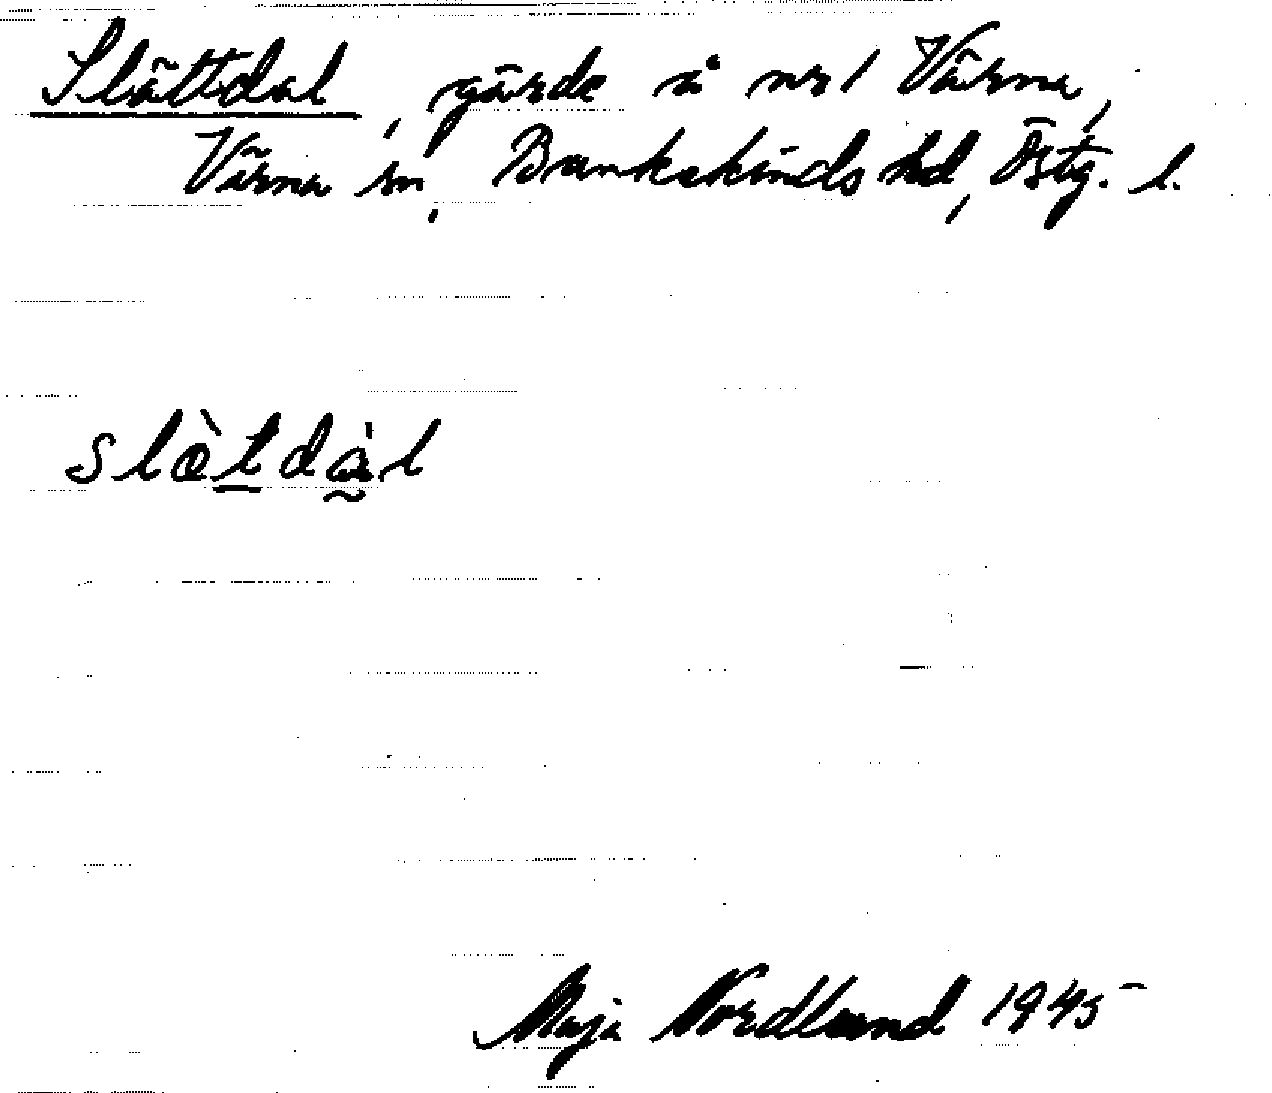 Slättdal, gärde å nr 1 Värna,
Värna sn, Bankekinds hd, Östg. l.
slæ̀tdàl
Maja Nordlund 1945